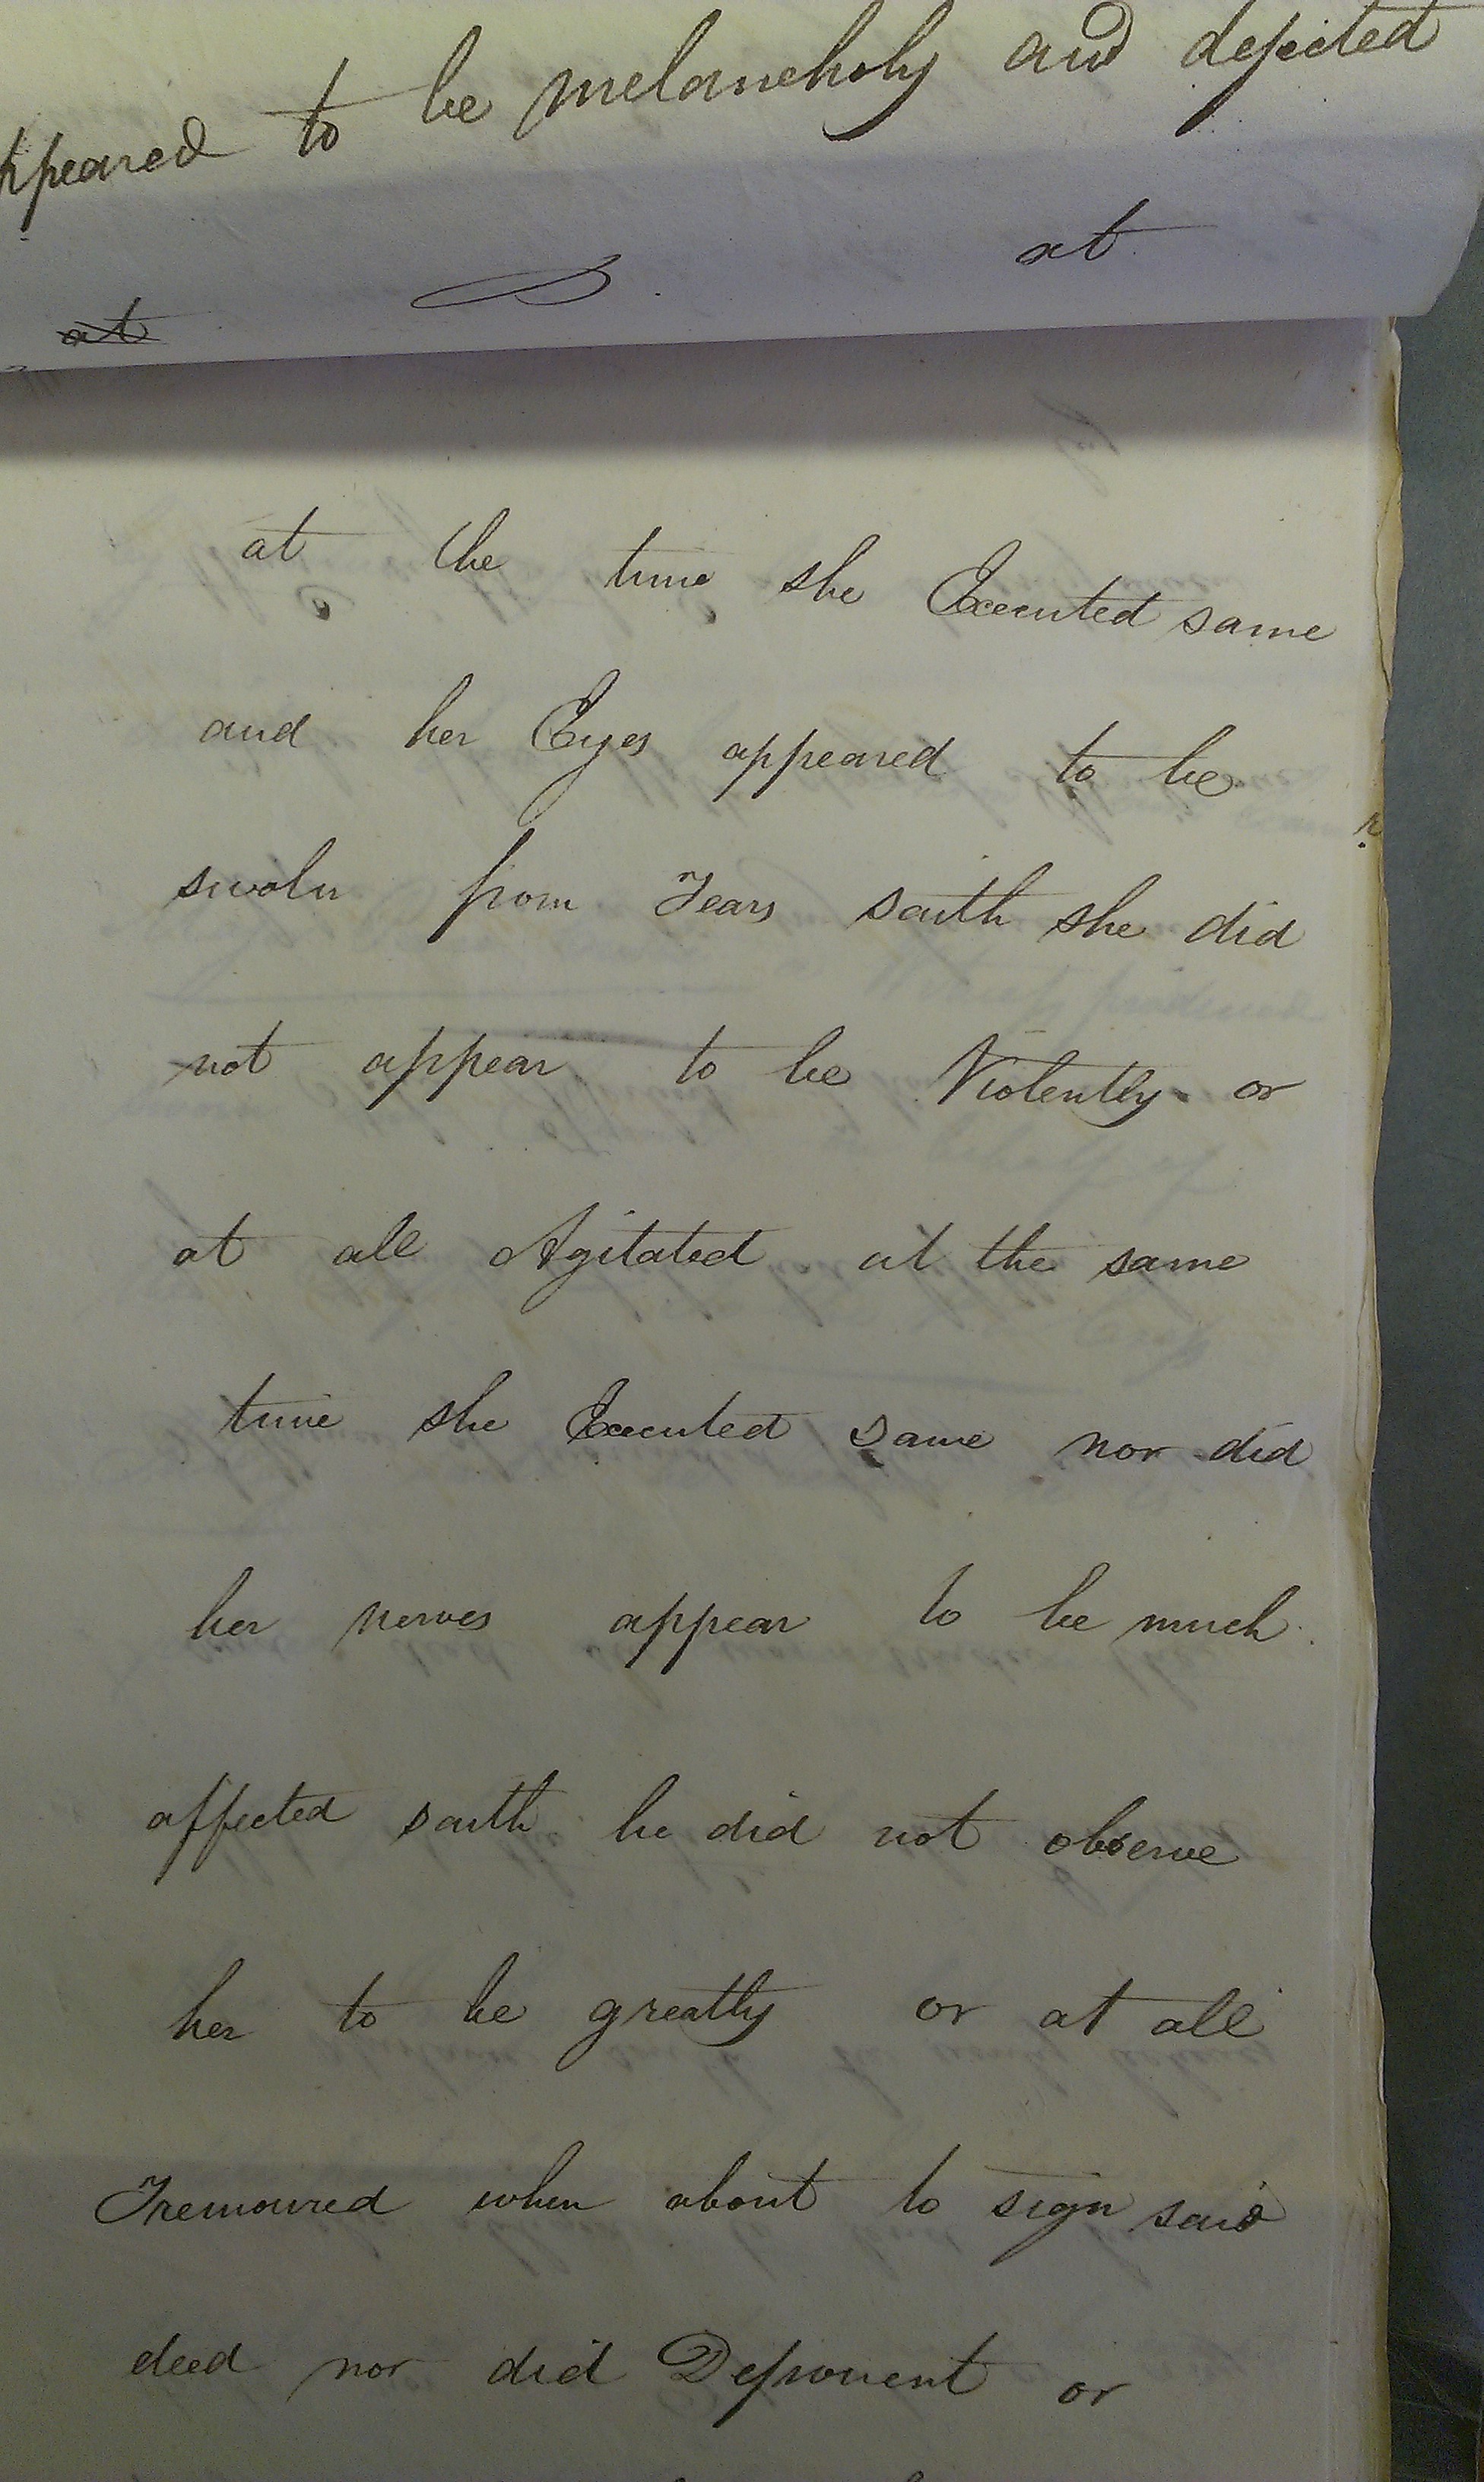 ppeared to be melancholy and dejected
at
at
at the time she Executed same
and her Eyes appeared to be
swoln from Tears saith she did
not appear to be Violently or
at all Agitated at the same
time she Executed same nor did
her nerves appear to be much
affected saith he did not observe
her to be greatly or at all
Tremoured when about to sign said
deed nor did Deponent or